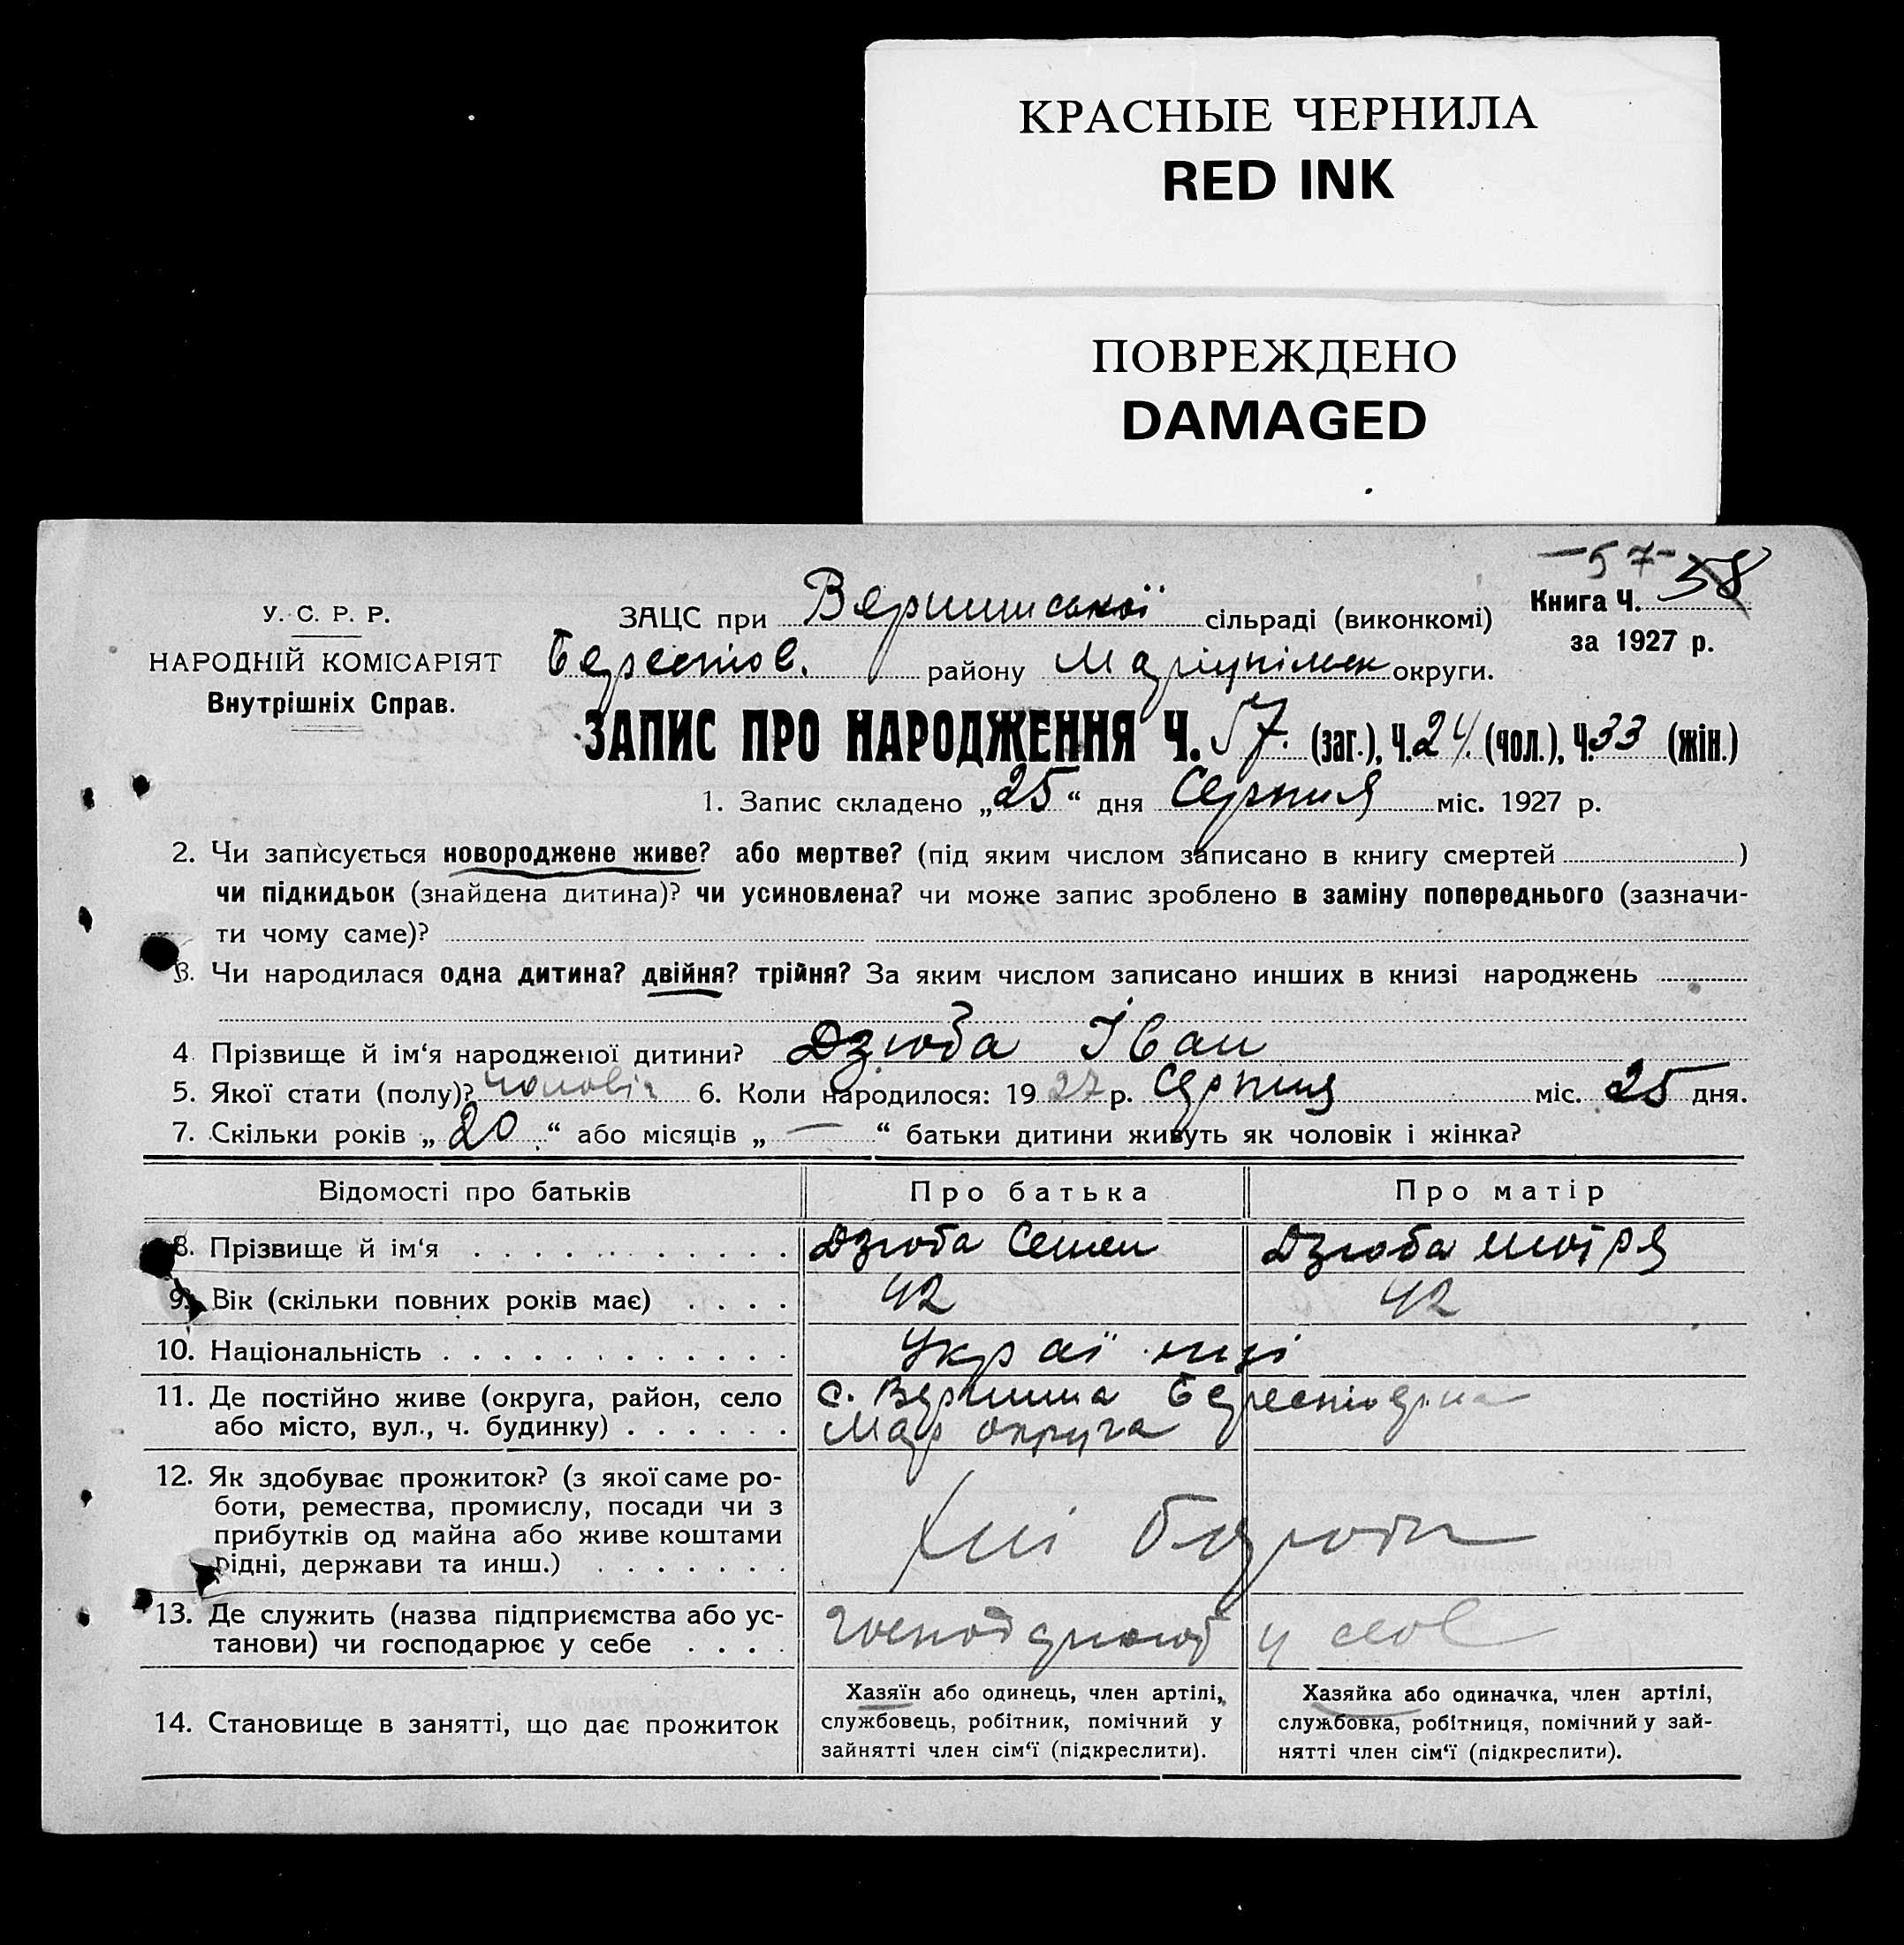 КРАСНЫЕ ЧЕРНИЛА
RED INK
ПОВРЕЖДЕНО
DAMAGED
-57- 58
У. С. Р. Р.
НАРОДНІЙ КОМІСАРІЯТ
Внутрішніх Справ.
ЗАЦС при Вершинської сільраді (виконкомі)
Книга Ч.
за 1927 р.
Берестов. району Маріупільск округи.
ЗАПИС ПРО НАРОДЖЕННЯ Ч. 57. (заг.), Ч. 24. (чол.), Ч. 33 (жін.)
1. Запис складено „25“ дня Серпня міс. 1927 р.
2. Чи записується новороджене живе? або мертве? (під яким числом записано в книгу смертей )
чи підкидьок (знайдена дитина)? чи усиновлена? чи може запис зроблено в заміну попереднього (зазначи-
ти чому саме)?
3. Чи народилася одна дитина? двійня? трійня? За яким числом записано инших в книзі народжень
4. Прізвище й ім‘я народженої дитини? Дзюба Іван
5. Якої стати (полу)? чоловіч 6. Коли народилося: 1927 р. Серпня міс. 25 дня.
7. Скільки років „20“ або місяців „—“ батьки дитини живуть як чоловік і жінка?
Відомості про батьків Про батька Про матір
8. Прізвище й ім‘я Дзюба Семен Дзюба Мотря
9. Вік (скільки повних років має) 42 42
10. Національність Україниці
11. Де постійно живе (округа, район, село
або місто, вул., ч. будинку)
с. Вершина
Мар округа
12. Як здобуває прожиток? (з якої саме ро-
боти, ремества, промислу, посади чи з
прибутків од майна або живе коштами
рідні, держави та инш.)
Хлі бороби
13. Де служить (назва підприємства або ус-
танови) чи господарює у себе
у себе
14. Становище в занятті, що дає прожиток
Хазяїн або одинець, член артілі,
службовець, робітник, помічний у
зайнятті член сім‘ї (підкреслити).
Хазяйка або одиначка, член артілі,
службовка, робітниця, помічний у зай-
нятті член сім‘ї (підкреслити).